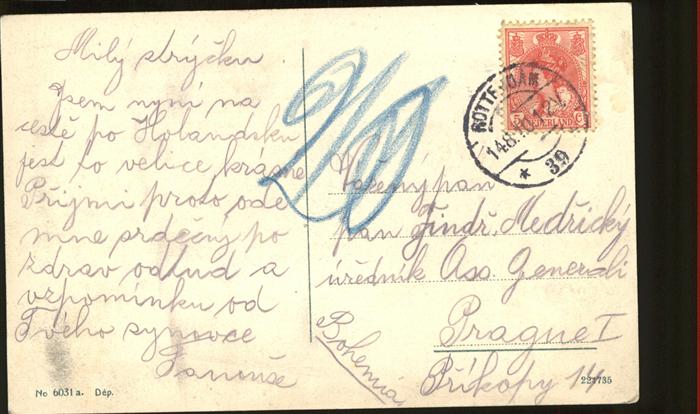 Milý strýčku
Jsem nyní na
cestě po Holandsku
jest to velice krásné
Přijmi proto, ode
mne srdečný po
zdrav odtud a
vzpomínku od
Tvého synovce
Janouše
No 6031 a. Dép.
20
5 C
NEDERLAND
ROTTERDAM
14.8.10.1-2
* 39
Vážený pan
pan Jindř. Medřický
úředník Ass. Generali
Prague I
Příkopy 14
Bohemia
221735